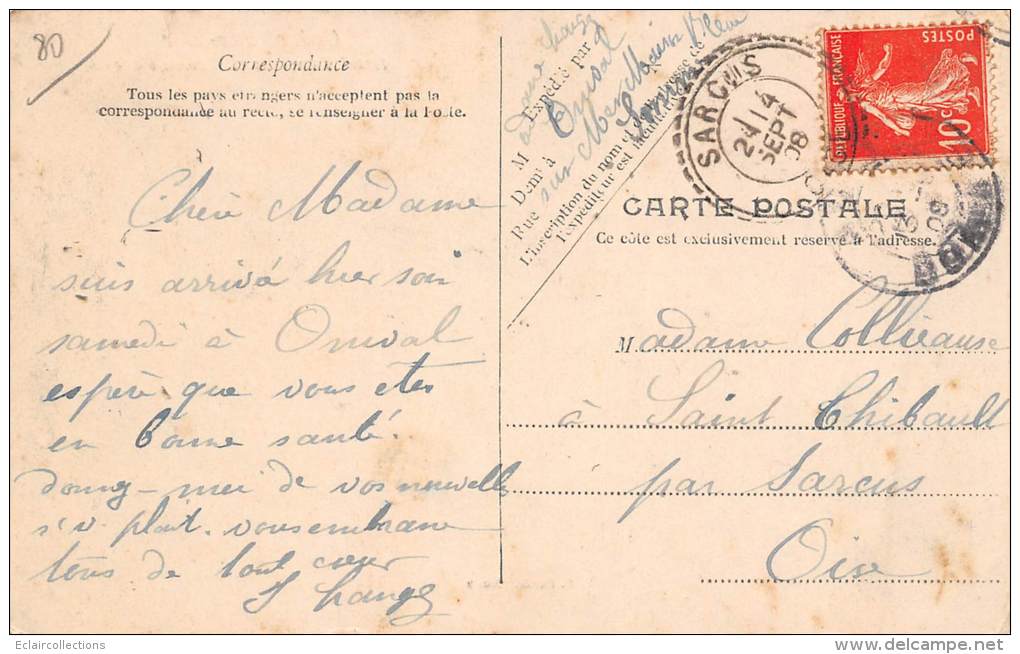 80
Correspondance
Tous les pays etrangers n'acceptent pas la
correspondance au recto, se renseigner à la Poste.
Chère Madame
suis arrivé hier soir
samedi à Onival
espère que vous etes
en bonne santé.
donnez-moi de vos nouvelles
s'v. plait. vous embrasse
tous de tout cœur
Expédié par
M
Demt à Onival
Rue sur Mer
Somme
L'inscription du nom et de l'adresse de
l'expéditeur est facultative
SARCUS
14
SEPT
08
POSTES
REPUBLIQUE FRANÇAISE
10c
CARTE POSTALE
Ce côte est exclusivement reservé à l'adresse.
Madame Collieause
à Saint Thibault
par Sarcus
Oise
Eclaircollections
www.delcampe.net